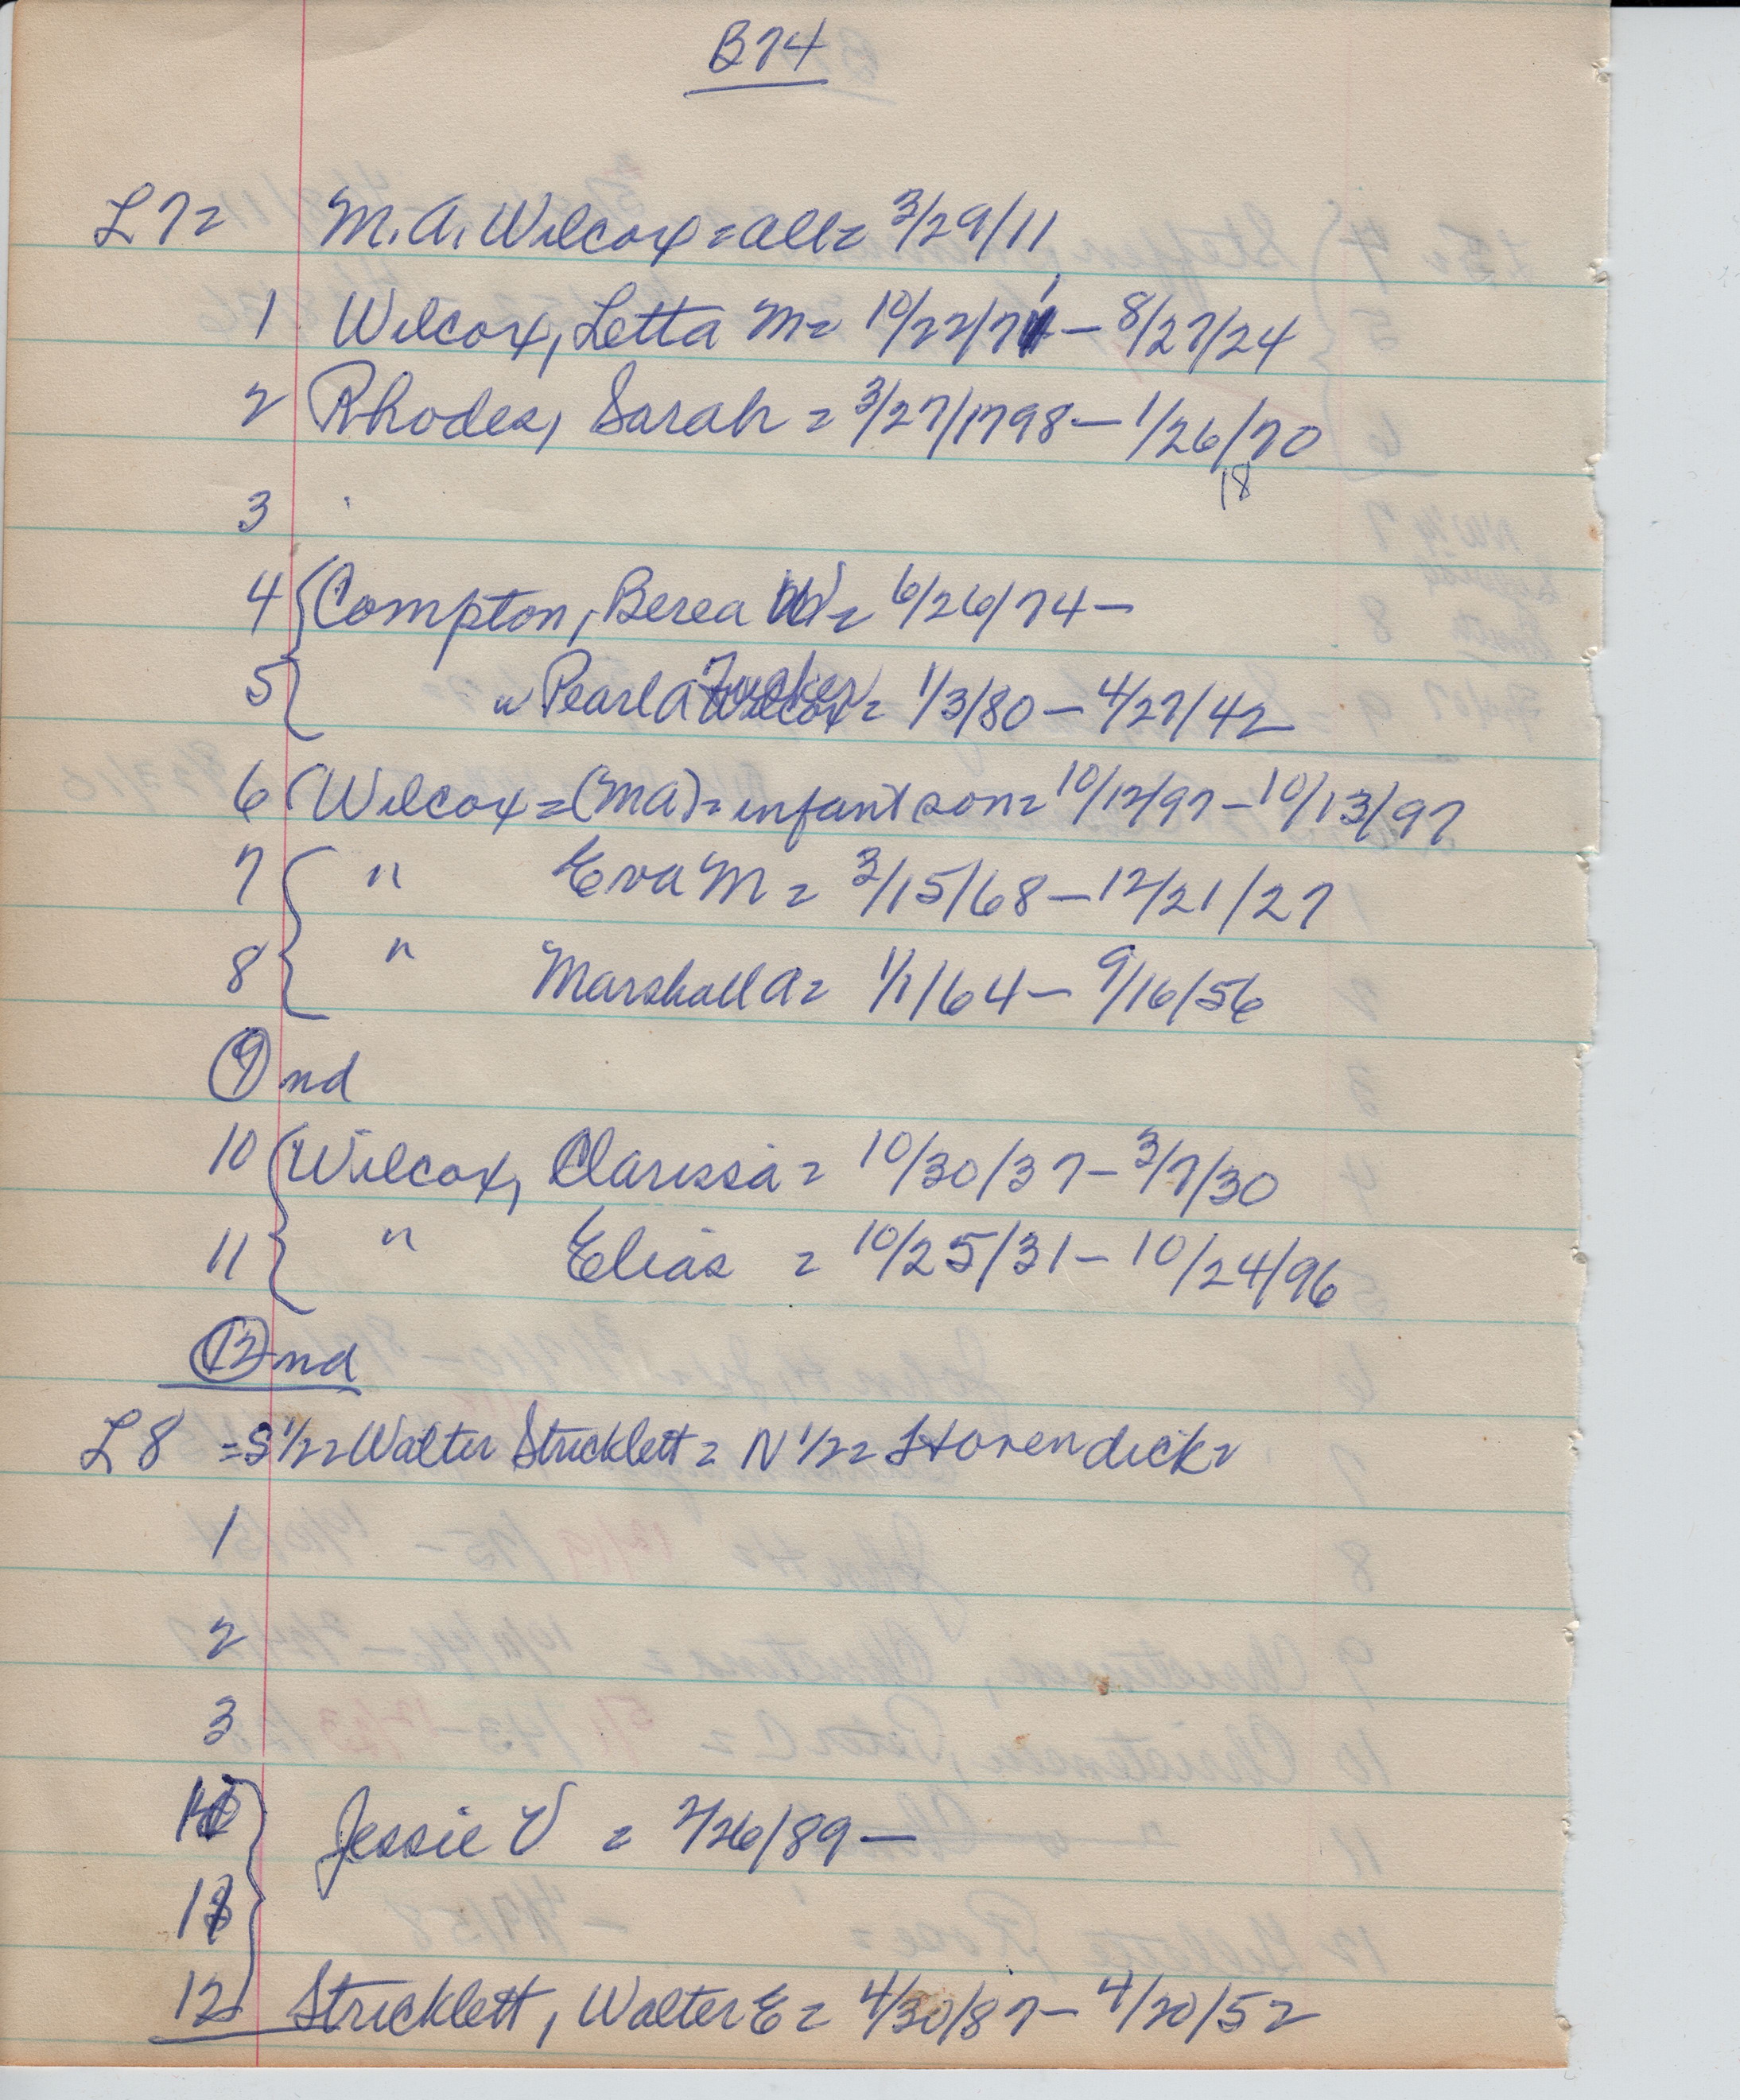 B74
L7= M.A. Wilcox = all = 3/29/11
1 Wilcox, Letta M = 10/22/71 - 8/27/24
2 Rhodes, Sarah = 3/27/1798 - 1/26/70
18
3
4 Compton, Berea W = 6/26/74 -
5 " Pearl A Tucker = 1/3/80 - 4/27/42
6 Wilcox = (MA) = infant son = 10/12/97 - 10/13/97
7 " Eva M = 3/15/68 - 12/21/27
8 " Marshall A = 1/1/64 - 9/16/56
9 nd
10 Wilcox, Clarissa = 10/30/37 - 3/7/30
11 " Elias = 10/25/31 - 10/24/96
12 nd
L8 = S 1/2 = Walter Stricklett = N 1/2 = Storendick =
1
2
3
10 Jessie V = 2/26/89 -
11
12 Stricklett, Walter E = 4/30/87 - 4/20/52